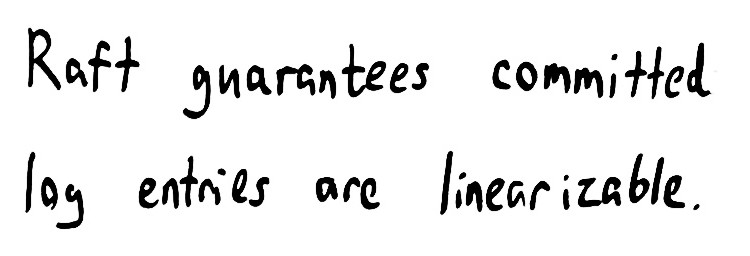 Raft guarantees committed
log entries are linearizable.